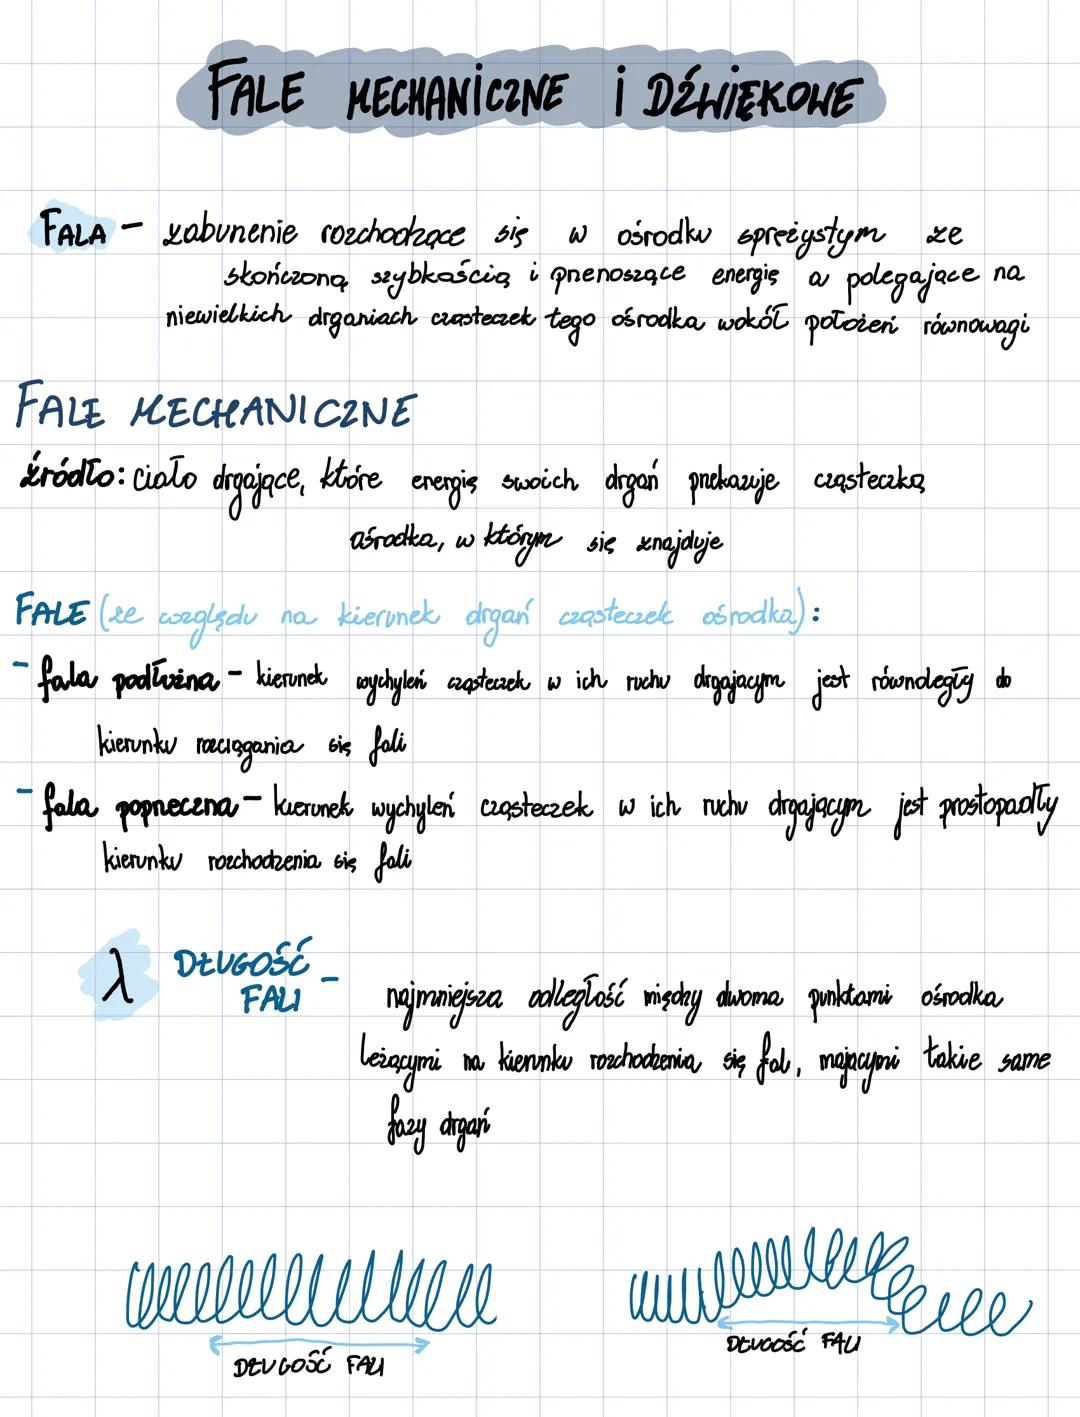 FALE MECHANICZNE i DŹWIĘKOWE
FALA - zaburzenie rozchodzące się w ośrodku sprężystym ze
skończoną szybkością i przenoszące energię a polegające na
niewielkich drganiach cząsteczek tego ośrodka wokół położeń równowagi
FALE MECHANICZNE
źródło: ciało drgające, które energię swoich drgań przekazuje cząsteczką
ośrodka, w którym się znajduje
FALE (ze względu na kierunek drgań cząsteczek ośrodka):
- fala podłużna - kierunek wychyleń cząsteczek w ich ruchu drgającym jest równoległy do
kierunku rozciągania się fali
- fala poprzeczna - kierunek wychyleń cząsteczek w ich ruchu drgającym jest prostopadły
kierunku rozchodzenia się fali
λ DŁUGOŚĆ
FALI -
najmniejsza odległość między dwoma punktami ośrodka
leżącymi na kierunku rozchodzenia się fal, mającymi takie same
fazy drgań
DŁUGOŚĆ FALI
DŁUGOŚĆ FALI